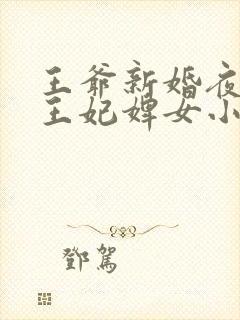 王爷新婚夜
王妃婢女小
鄧駕